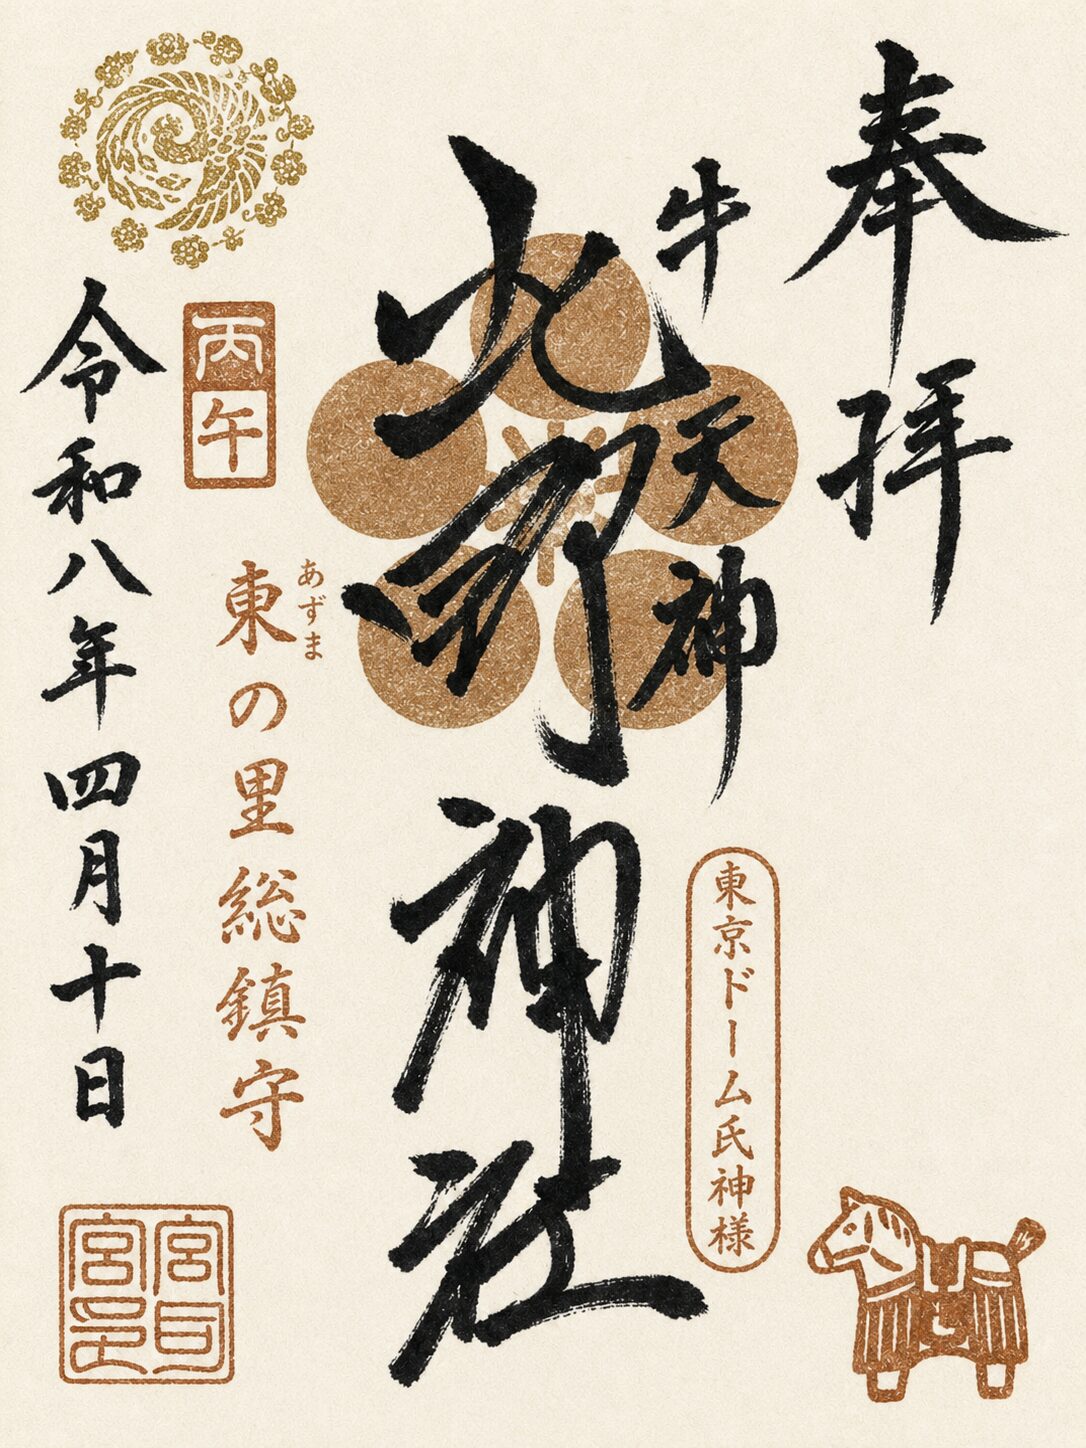 奉拝
牛天神
北野神社
東京ドーム氏神様
あずま
東の里総鎮守
丙午
令和八年四月十日